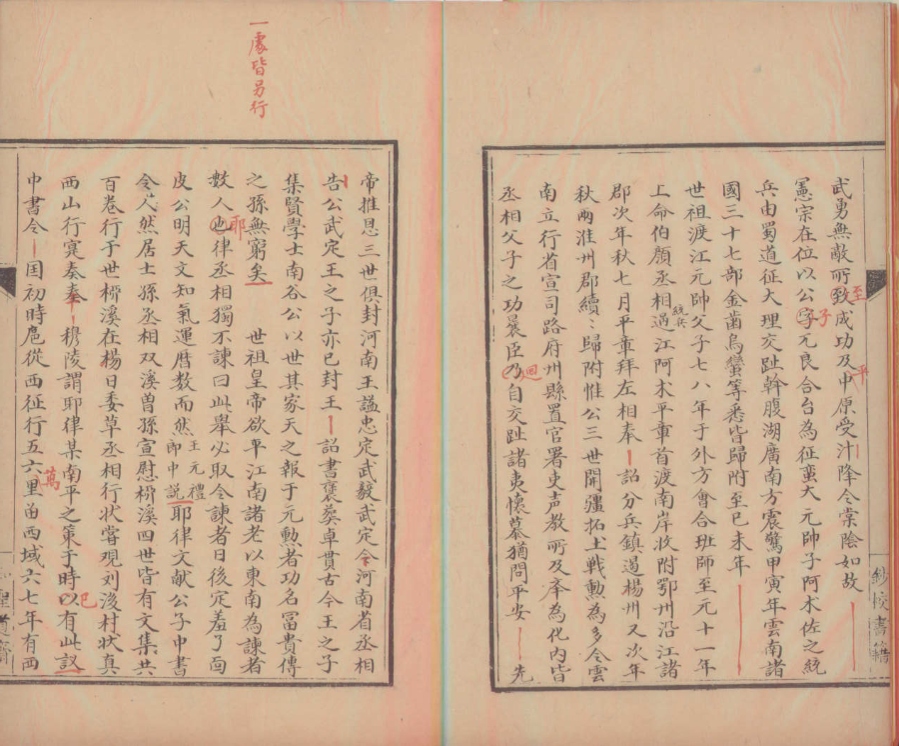 武勇無敵所致成功及中原受汴降令棠陰如故
至
平
憲宗在位以公字元良合台為征蛮大元帥子阿朮佐之統
子
兵由蜀道征大理交趾幹腹湖廣南方震驚甲寅年雲南諸
國三十七部金齒烏蠻等悉皆歸附至己未年
世祖渡江元帥父子七八年于外方會合班師至元十一年
上命伯顏丞相過江阿朮平章首渡南岸收附鄂州沿江諸
統兵
郡次年秋七月平章拜左相奉詔分兵鎮過楊州又次年
秋兩淮州郡續〻歸附惟公三世開疆拓土戰動為多今雲
南立行省宣司路府州縣置官署吏声教所及奉為化內皆
丞相父子之功晨臣乃自交趾諸夷懷慕猶問平安先
廻
鈔校書籍
一處皆另行
帝推恩三世俱封河南王謚忠定武毅武定今河南省丞相
告公武定王之子亦已封王詔書褒奬卓貫古今王之子
集賢學士南谷公以世其家天之報于元勳者功名冨貴傳
之孫無窮矣 世祖皇帝欲平江南諸老以東南為諫者
數人也律丞相獨不諫曰此舉必取令諫者日後定羞了面
耶
皮公明天文知氣運暦数而然王元禮郎中説耶律文献公子中書
令人然居士孫丞相双溪曽孫宣慰栁溪四世皆有文集共
百卷行于世栁溪在楊日委草丞相行状嘗观刘後村状真
西山行寔奏奉穆陵謂耶律某南平之策于時以有此説
已
中書令国初時扈從西征行五六里畄西域六七年有西
萬